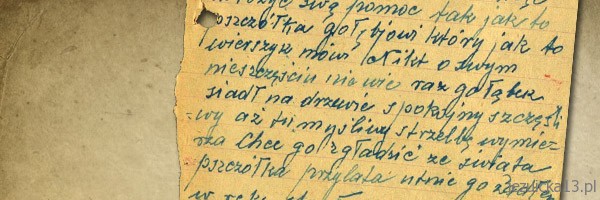 swą pomoc tak jak to
pszczółka gołębiowi który jak to
wierszyk mówi Nikt o swym
nieszczęściu nie wie raz gołąbek
siadł na drzewie spokojny szczęśli
wy aż tu myśliwy strzelbę wymie
rza chce go zgładzić ze świata
pszczółka przylata utnie go
w rękę